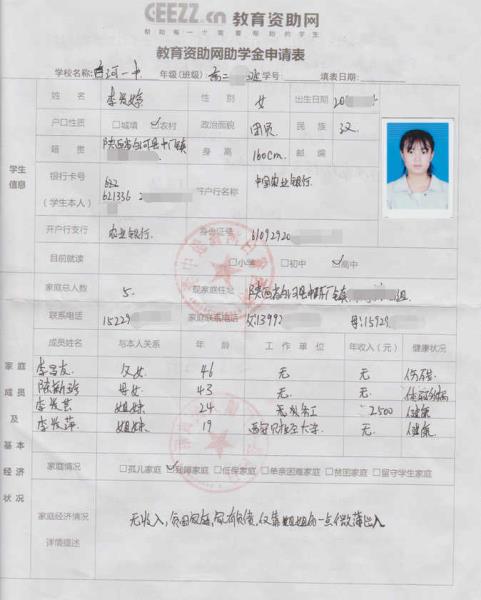 CEEZZ.cn 教育资助网
帮助每一个需要帮助的学生
教育资助网助学金申请表
学校名称: 白河一中 年级(班级) 高二 班 学号: 填表日期:
姓名 李发婷 性别 女 出生日期 20
户口性质 □城填 ☑农村 政治面貌 团员 民族 汉
籍贯 陕西省白河县中厂镇 身高 160cm 邮编
学生信息
银行卡号 (学生本人) 622 621336 2 开户行名称 中国农业银行.
开户行支行 农业银行. 身份证号 61092920
目前就读 □小学 □初中 ☑高中
家庭总人数 5. 现家庭住址 陕西省白河县中厂镇 组
联系电话 15229 家庭联系电话 父:13992 母:15929
家庭成员及基本经济状况
成员姓名 与本人关系 年龄 工作单位 年收入(元) 健康状况
父女 46 无 无
母女 43 无 无
姐妹 24 2500 健康
姐妹 19 无. 健康
家庭情况 □孤儿家庭 ☑残障家庭 □低保家庭 □单亲困难家庭 □贫困家庭 □留守学生家庭
家庭经济情况详情描述
无收入,贫困家庭,家有负债,仅靠姐姐的一点微薄收入